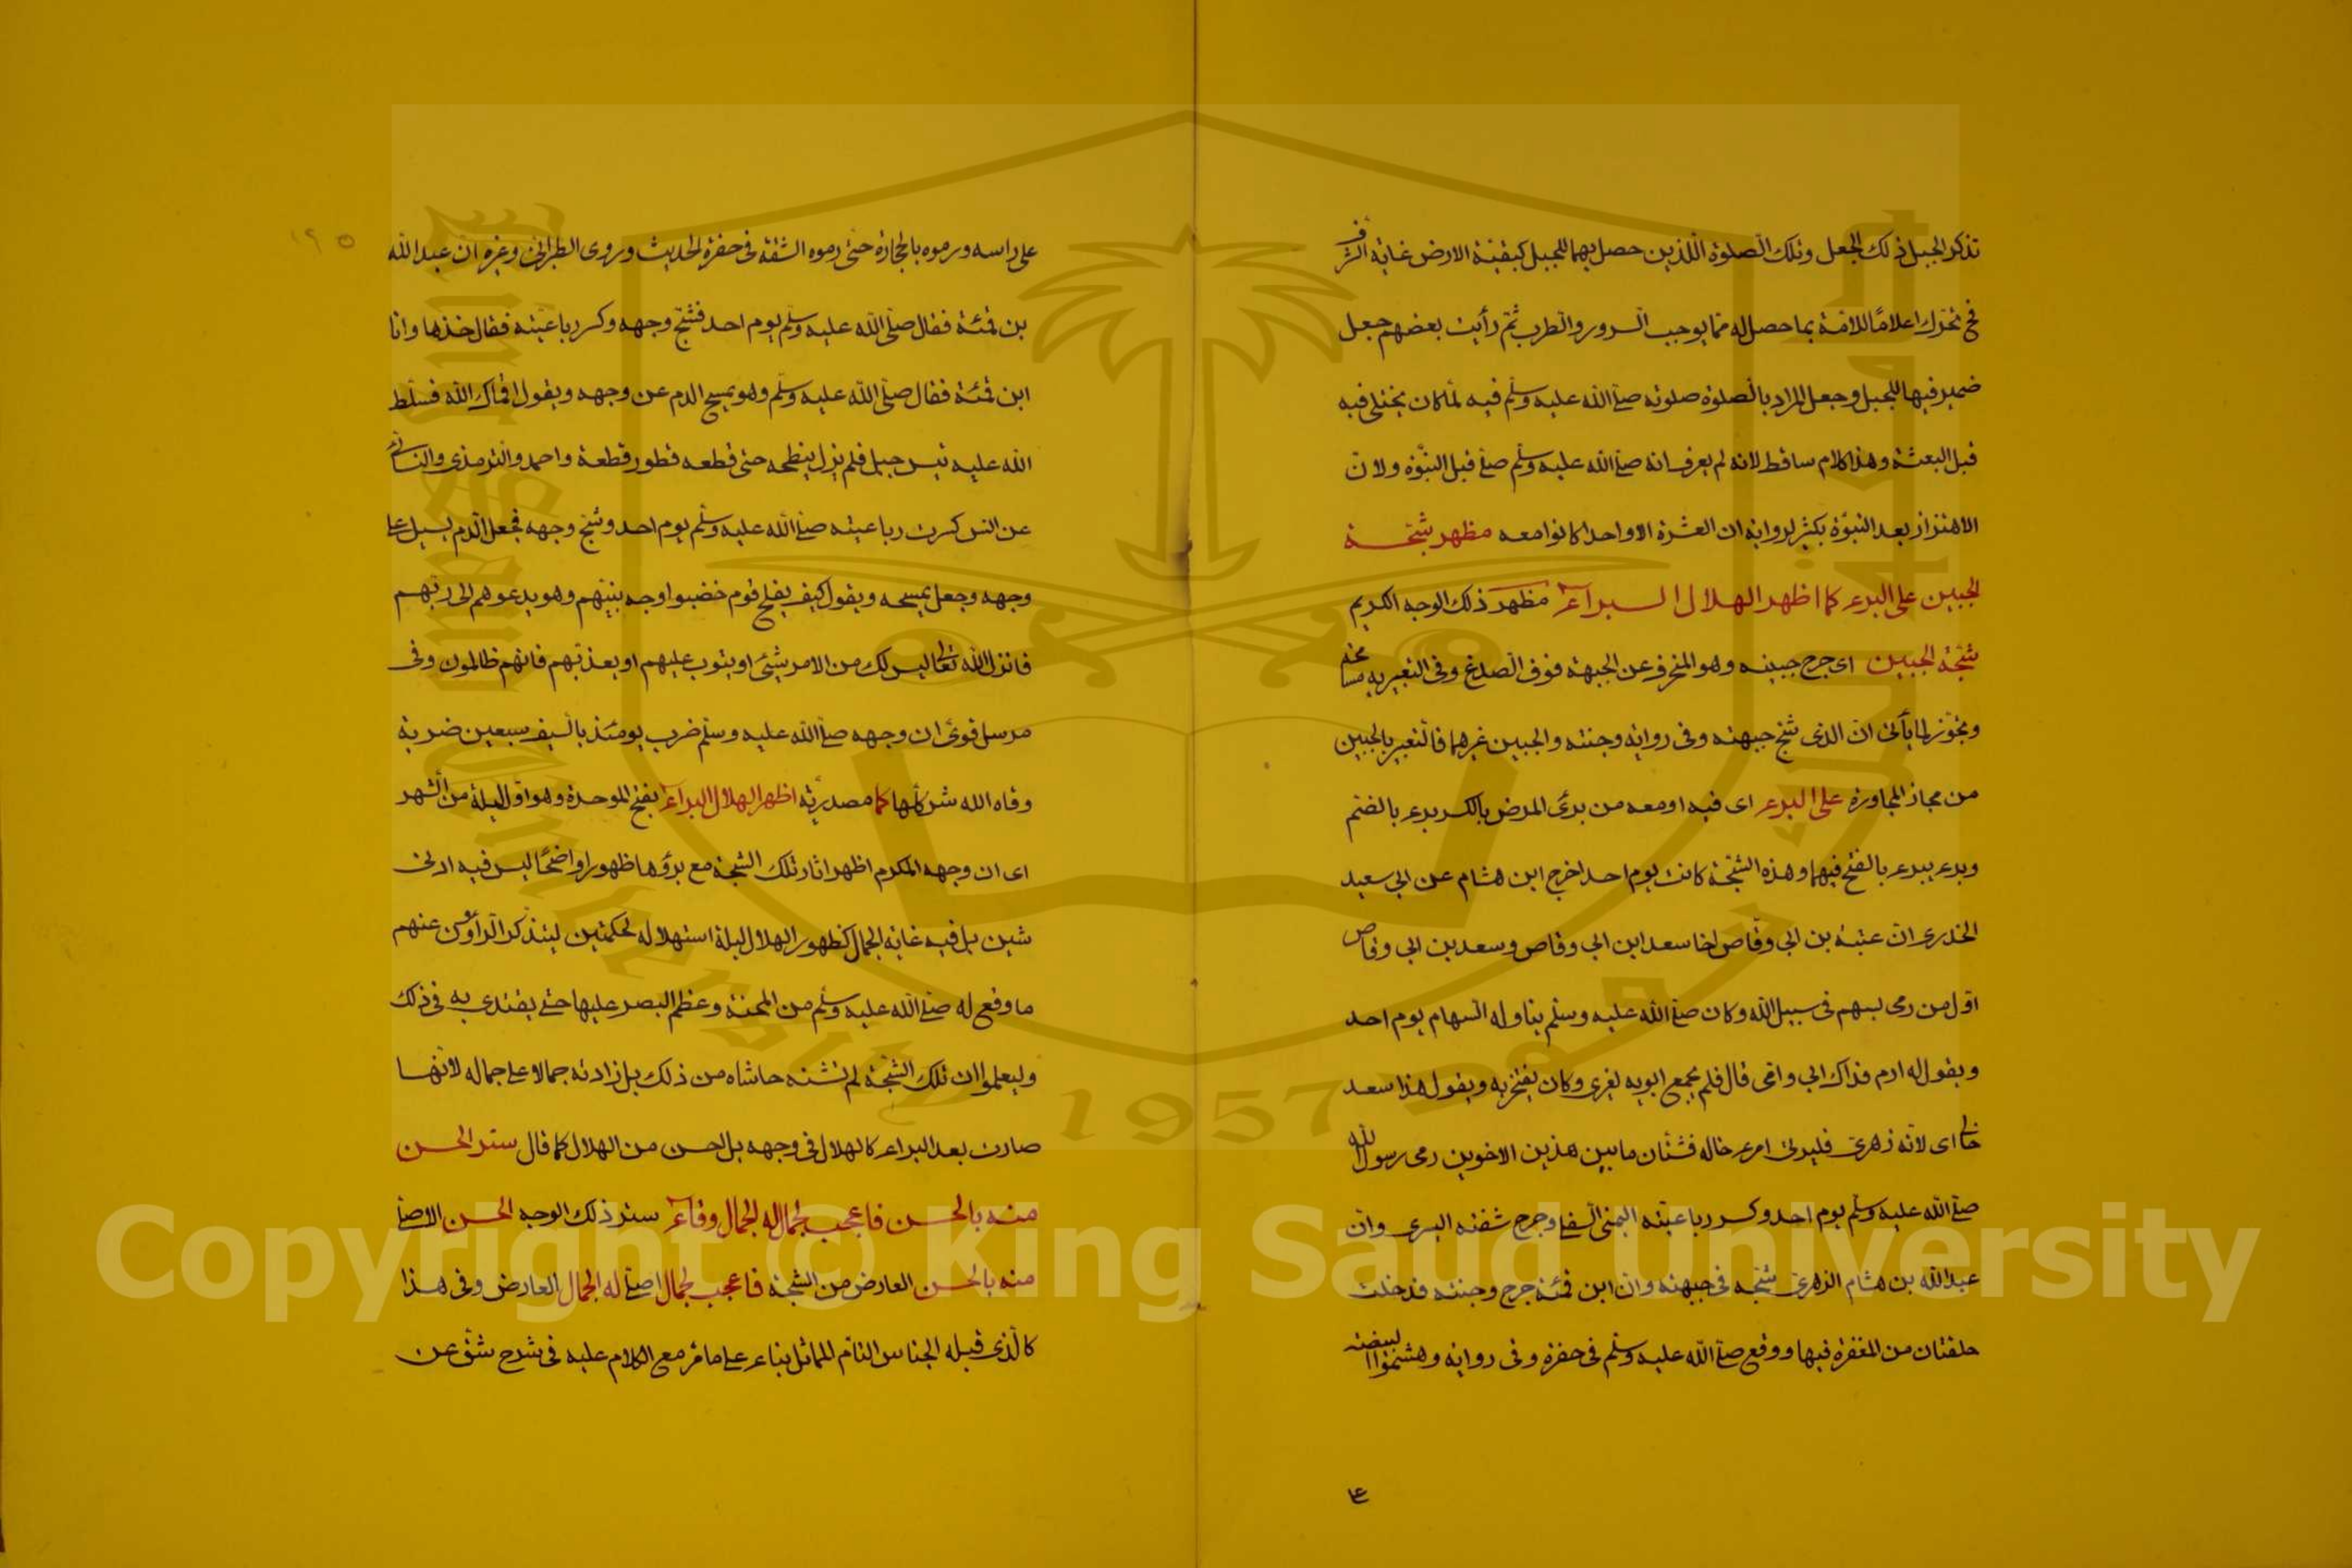 تذكر الجبل ذلك الجعل وتلك الصلوة اللذين حصل بهما للجبل كبقيّة الارض غاية الشرف
فح تحرّك اعلامًا للامّة بما حصل له ممّا يوجب السرور والطرب ثمّ رأيت بعضهم جعل
ضمير فيها للجبل وجعل المراد بالصلوة صلوته صلى الله عليه وسلّم فيه لمّا كان يختلى فيه
قبل البعثة وهذا كلام ساقط لانه لم يعرف انه صلى الله عليه وسلّم صلى قبل النبوّة ولان
الاهتزاز بعد النبوّة بكثير لرواية ان العشرة الا واحدا كانوا معه مظهر شجّة
الجبين على البرء كما اظهر الهلال البراء مظهر ذلك الوجه الكريم
شجّة الجبين اى جرح جبينه وهو المنحرف عن الجبهة فوق الصدغ وفى التعبير به مسامحة
وتجوّز لما يأتى انّ الذى شجّ جبهته وفى رواية وجنته والجبين غيرهما فالتعبير بالجبين
من مجاز المجاورة على البرء اى فيه او معه من برئ المرض بالكسر برء بالضم
وبرء يبرء بالفتح فيهما وهذه الشجّة كانت يوم احد اخرج ابن هشام عن ابي سعيد
الخدرى انّ عتبة بن ابي وقّاص اخا سعد ابن ابي وقاص وسعد بن ابي وقاص
اوّل من رمى بسهم فى سبيل الله وكان صلى الله عليه وسلّم يناوله السهام يوم احد
ويقول له ارم فداك ابي وامّى قال فلم يجمع ابويه لغيرى وكان يفتخر به ويقول هذا سعد
خالى اى لانّه زهرىّ فليرنى امرء خاله فشتّان ما بين هذين الاخوين رمى رسول الله
صلى الله عليه وسلّم يوم احد وكسر رباعيته اليمنى السفلى وجرح شفته اليسرى وانّ
عبد الله بن هشام الزهرىّ شجّه فى جبهته وان ابن قمئة جرح وجنته فدخلت
حلقتان من المغفرة فيها ووقع صلى الله عليه وسلّم فى حفرة وفى رواية وهشموا البيضة
على
١٩٥
على راسه ورموه بالحجارة حتى رموه الشقّة فى حفرة الحديث وروى الطبرانى وغيره ان عبد الله
بن قمئة فقال صلّى الله عليه وسلّم يوم احد فشجّ وجهه وكسر رباعيّته فقال خذها وانا
ابن قمئة فقال صلّى الله عليه وسلّم وهو يمسح الدم عن وجهه ويقول اقماك الله فسلّط
الله عليه تيس جبل فلم يزل ينطحه حتى قطعه قطعة واحمد والترمذى والنسائى
عن انس كسرت رباعيته صلى الله عليه وسلّم يوم احد وشجّ وجهه فجعل الدم يسيل على
وجهه وجعل يمسحه ويقول كيف يفلح قوم خضبوا وجه نبيّهم وهو يدعوهم الى ربّهم
فانزل الله تعالى ليس لك من الامر شيئ او يتوب عليهم او يعذّبهم فانهم ظالمون وفى
مرسل قوىّ ان وجهه صلى الله عليه وسلّم ضرب يومئذ بالسيف سبعين ضربة
وقاه الله شر كلّها كما مصدريّة اظهر الهلال البراء بفتح الموحدة وهو اوّل ليلة من الشهر
اى ان وجهه المكرم اظهر اثار تلك الشجة مع برؤها ظهورا واضحًا ليس فيه ادنى
شين بل فيه غاية الجمال كظهور الهلال ليلة استهلاله لحكمتين ليتذكّر الراؤن عنهم
ما وقع له صلى الله عليه وسلّم من المحنة وعظم البصر عليها حتى يقتدى به فى ذلك
وليعلموا ان تلك الشجّة لم تشنه حاشاه من ذلك بل زادته جمالا على جماله لانّها
صارت بعد البراء كالهلال فى وجهه بل احسن من الهلال كما قال ستر الحسن
منه بالحسن فاعجب لجمال له الجمال وقاء ستر ذلك الوجه الحسن الاصلى
منه بالحسن العارض من الشجة فاعجب لجمال اصلى له الجمال العارض وفى هذا
كالّذى قبله الجناس التامّ المماثل بناء على ما مرّ مع الكلام عليه فى شرح شقّ عن
Copyright © King Saud University
King Saud University
1957